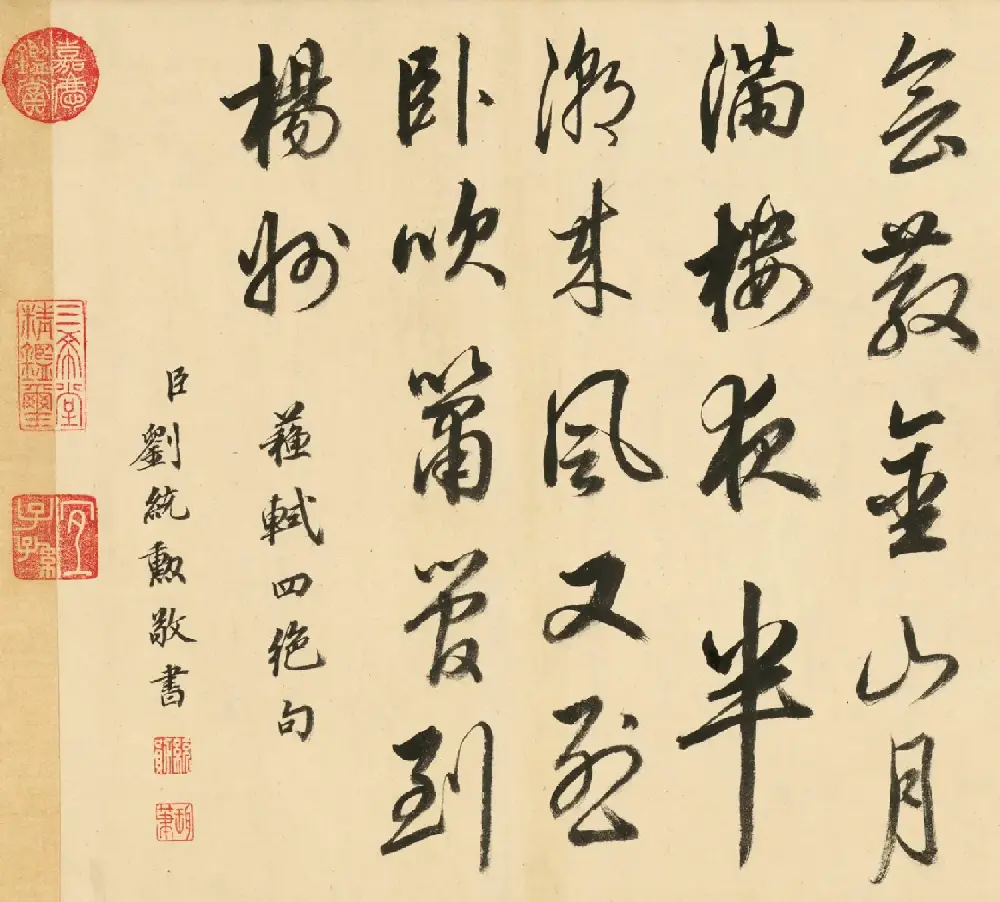 會散金山月
滿樓夜半
潮來風又熟
臥吹簫管到
楊州
蘇軾四絕句
臣劉統勳敬書
嘉慶鑑賞
三希堂精鑑璽
宜子孫